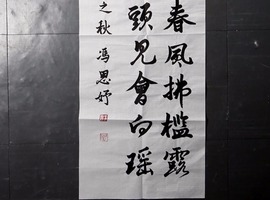 春風拂檻露
頭見會向瑶
之秋 馮思妤